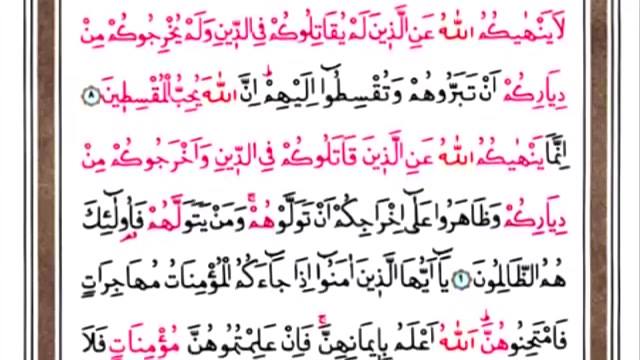 لَا يَنْهٰيكُمُ اللّٰهُ عَنِ الَّذ۪ينَ لَمْ يُقَاتِلُوكُمْ فِي الدّ۪ينِ وَلَمْ يُخْرِجُوكُمْ مِنْ
دِيَارِكُمْ اَنْ تَبَرُّوهُمْ وَتُقْسِطُٓوا اِلَيْهِمْۜ اِنَّ اللّٰهَ يُحِبُّ الْمُقْسِط۪ينَ ﴿٨﴾
اِنَّمَا يَنْهٰيكُمُ اللّٰهُ عَنِ الَّذ۪ينَ قَاتَلُوكُمْ فِي الدّ۪ينِ وَاَخْرَجُوكُمْ مِنْ
دِيَارِكُمْ وَظَاهَرُوا عَلٰٓى اِخْرَاجِكُمْ اَنْ تَوَلَّوْهُمْۚ وَمَنْ يَتَوَلَّهُمْ فَاُو۬لٰٓئِكَ
هُمُ الظَّالِمُونَ ﴿٩﴾ يَٓا اَيُّهَا الَّذ۪ينَ اٰمَنُٓوا اِذَا جَٓاءَكُمُ الْمُؤْمِنَاتُ مُهَاجِرَاتٍ
فَامْتَحِنُوهُنَّۜ اَللّٰهُ اَعْلَمُ بِا۪يمَانِهِنَّۚ فَاِنْ عَلِمْتُمُوهُنَّ مُؤْمِنَاتٍ فَلَا